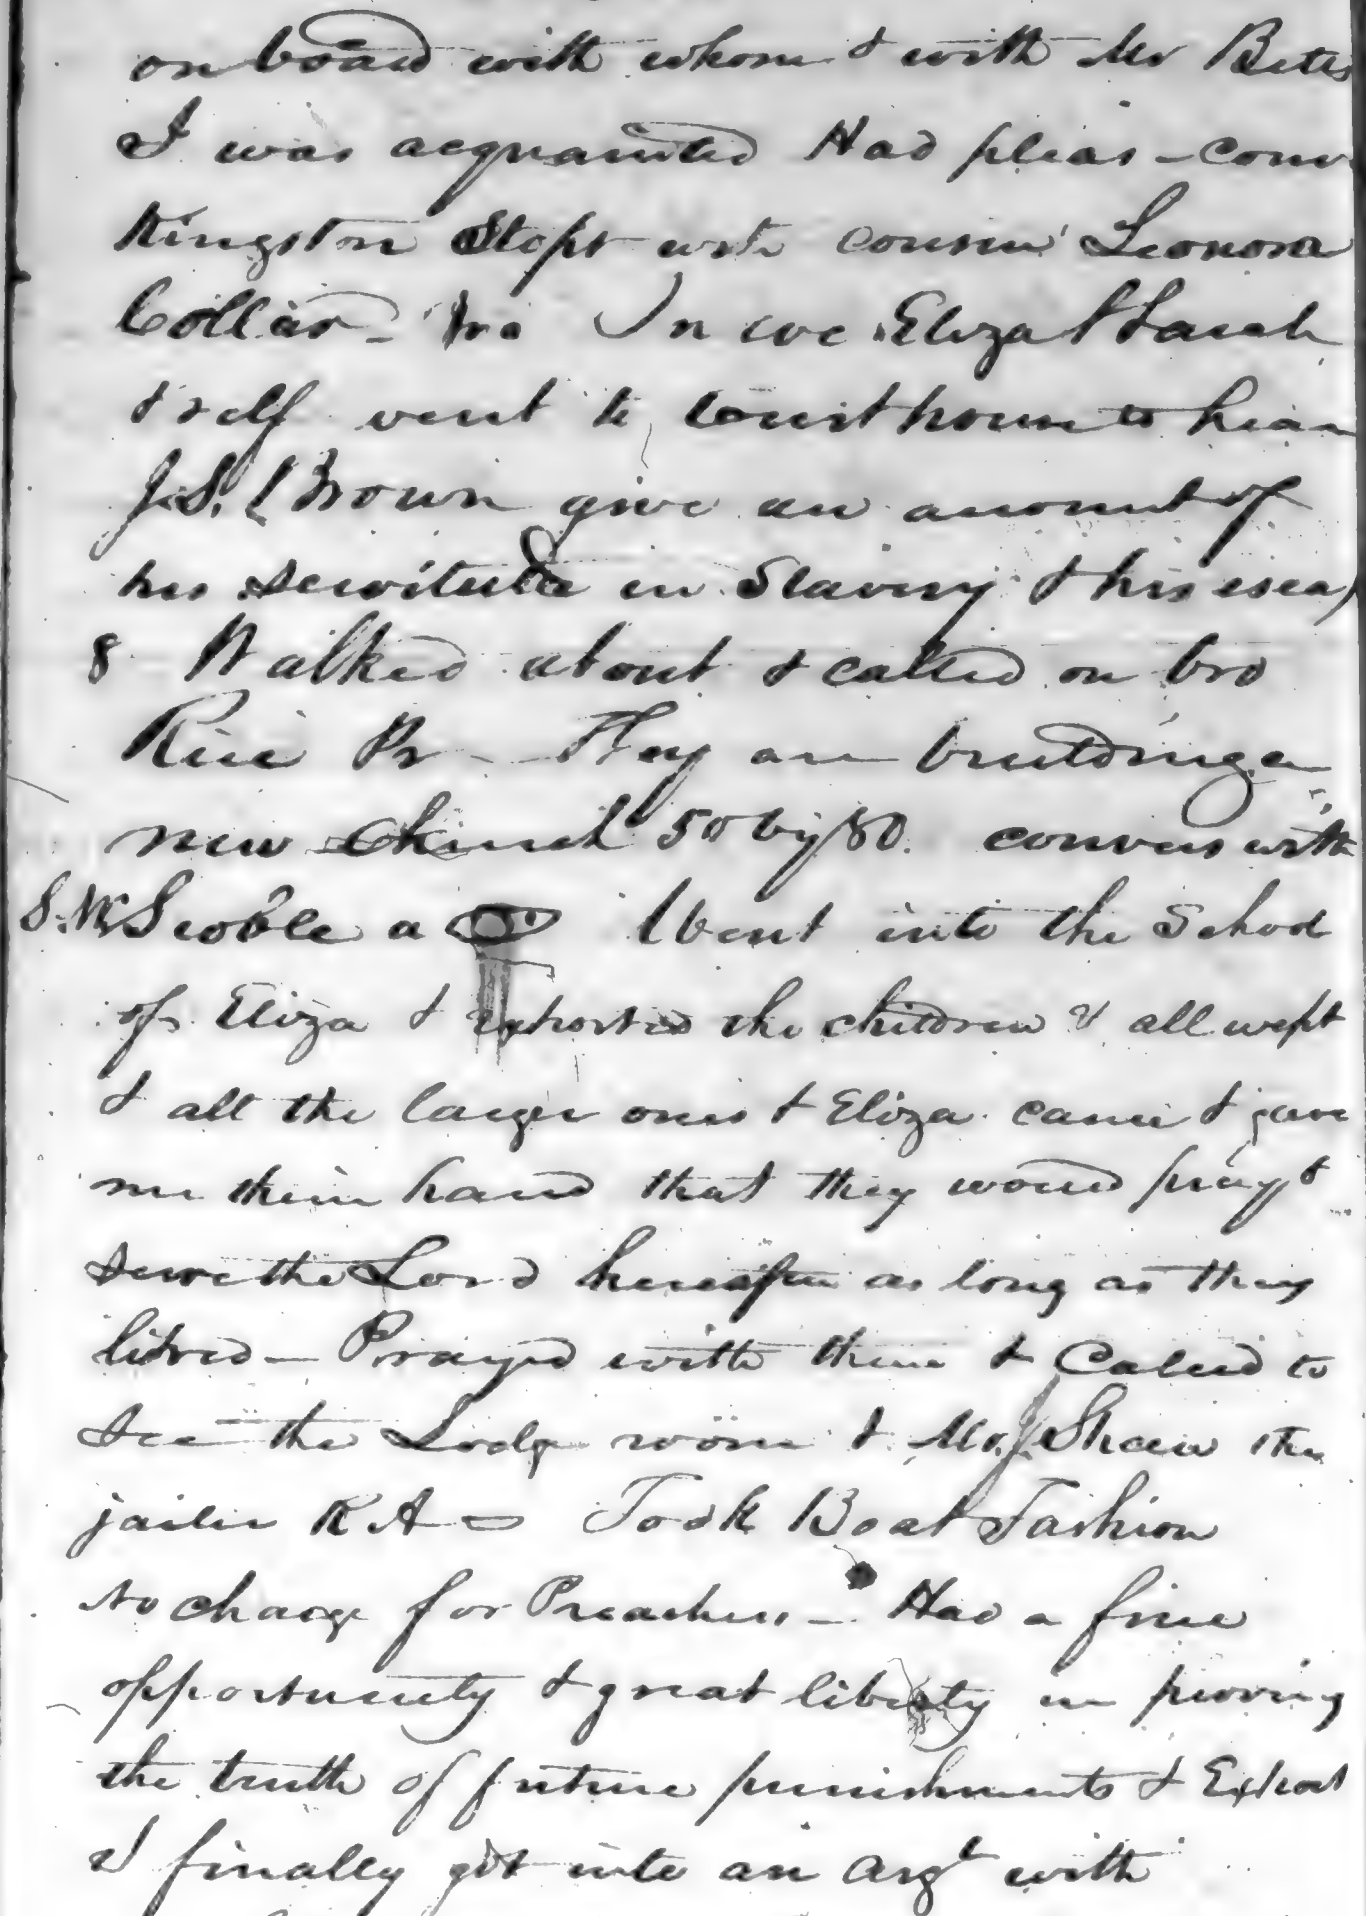 on board with whom & with Mr Betts
I was acquainted Had pleas - conv
Kingston Stopt with cousin Leonora
Collar - In eve Eliza & Sarah
& self went to Courthouse to hear
J.S. Brown give an account of
his servitude in Slavery & his escap
8 Walked about & called on bro
Rice Pr - They are building a
new church 50 by 80. convers with
S.W. Scoble a Went into the School
of Eliza & exhorted the children & all wept
& all the larger ones & Eliza came & gave
me their hand that they would pray &
serve the Lord hereafter as long as they
lived - Prayed with them & Called to
see the Lodge room & Mr. J Shaw the
jailer R A Took Boat Fashion
no charge for Preachers - Had a fine
opportunity & great liberty in proving
the truth of future punishments & Exhort
& finally got into an Argt with